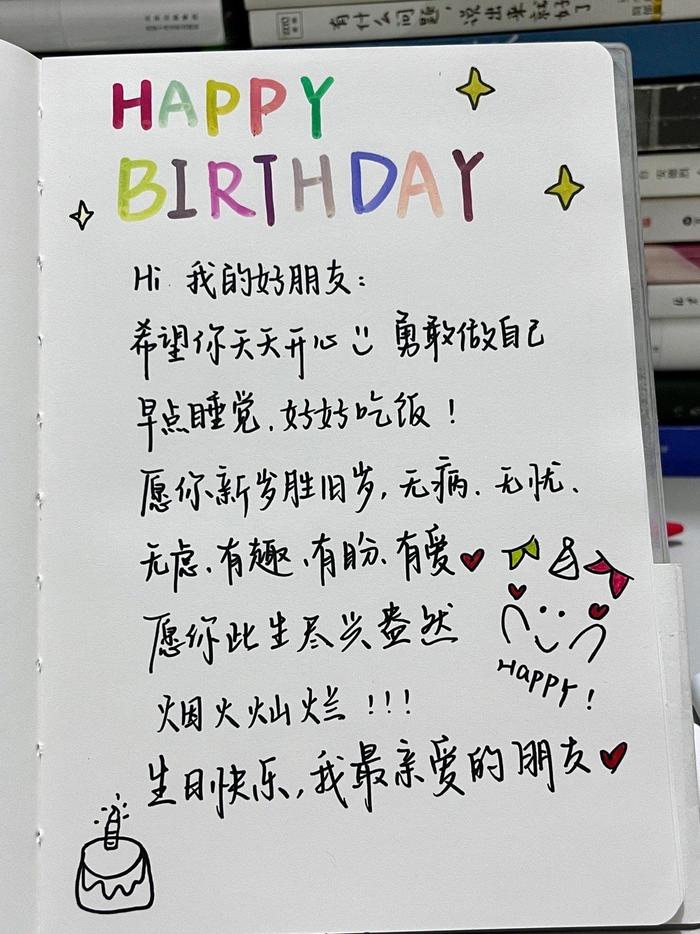 有什么问题，说出来就好了
HAPPY
BIRTHDAY
Hi 我的好朋友：
希望你天天开心 勇敢做自己
早点睡觉、好好吃饭！
愿你新岁胜旧岁，无病、无忧、
无虑、有趣、有盼、有爱
愿你此生尽兴盎然
烟火灿烂！！！
Happy!
生日快乐，我最亲爱的朋友